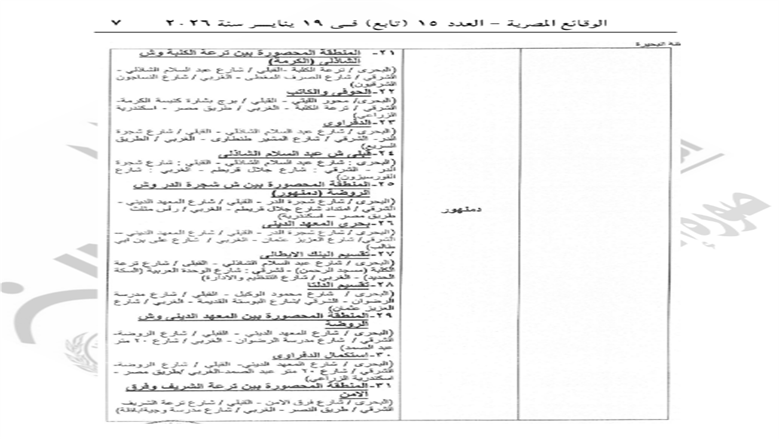 الوقائع المصرية – العدد ١٥ (تابع) فى ١٩ ينايـر سنة ٢٠٢٦ ٧
ظة البحيرة
٢١- المنطقة المحصورة بين ترعة الكلبة وش
الشاذلى (الكرمة)
(البحرى / ترعة الكلبة -القبلي / شارع عبد السلام الشاذلي -
الشرقي / شارع الصرف المغطى - الغربي / شارع النساجون
الشرقيون)
٢٢-الحوفى والكاتب
(البحرى/ محور القبلي - القبلي / برج بشارة كنيسة الكرمة-
الشرقي / ترعة الكلبة - الغربي / طريق مصر - اسكندرية
الزراعي)
٢٣-الدفراوى
(البحرى / شارع عبد السلام الشاذلي - القبلي / شارع شجرة
الدر- الشرقي / شارع المشير طنطاوى - الغربي / الطريق
السريع)
٢٤- قبلى ش عبد السلام الشاذلى
(البحرى : شارع عبد السلام الشاذلي - القبلي : شارع شجرة
الدر - الشرقي : شارع جلال قريطم - الغربي : شارع
الفورسيزون)
٢٥- المنطقة المحصورة بين ش شجرة الدر وش
الروضة (دمنهور)
(البحرى / شارع شجرة الدر - القبلي / شارع المعهد الديني -
الشرقي / امتداد شارع جلال قريطم - الغربي / رأس مثلث
طريق مصر – اسكندرية)
دمنهور
٢٦- بحرى المعهد الدينى
(البحرى / شارع شجرة الدر - القبلي / شارع المعهد الديني –
الشرقي/ شارع العزيز عثمان - الغربي / شارع على بن ابي
طالب)
٢٧- تقسيم البنك الايطالى
(البحرى / شارع عبد السلام الشاذلي - القبلي / شارع ترعة
الكلبة (مسجد الرحمن) - الشرقي : شارع الوحدة العربية (السكة
الحديد) - الغربي / شارع التنظيم والادارة)
٢٨- تقسيم الدلتا
(البحرى / شارع محمود الوكيل - القبلي / شارع مدرسة
الرضوان - الشرقي /شارع البوستة القديمة - الغربي / شارع
العزيز عثمان)
٢٩- المنطقة المحصورة بين المعهد الدينى وش
الروضة
(البحرى / شارع المعهد الديني - القبلي / شارع الروضة-
الشرقي / شارع مدرسة الرضوان - الغربي / شارع ٢٠ متر
عبد الصمد)
٣٠- إستكمال الدفراوى
(البحرى / شارع المعهد الديني- القبلي / شارع الروضة-
الشرقي / شارع ٢٠ متر عبد الصمد-الغربي /طريق مصر -
اسكندرية الزراعي)
٣١- المنطقة المحصورة بين ترعة الشريف وفرق
الامن
(البحرى / شارع فرق الامن - القبلي / شارع ترعة الشريف
الشرقي / طريق النصر - الغربي / شارع مدرسة وجيه أباظة)